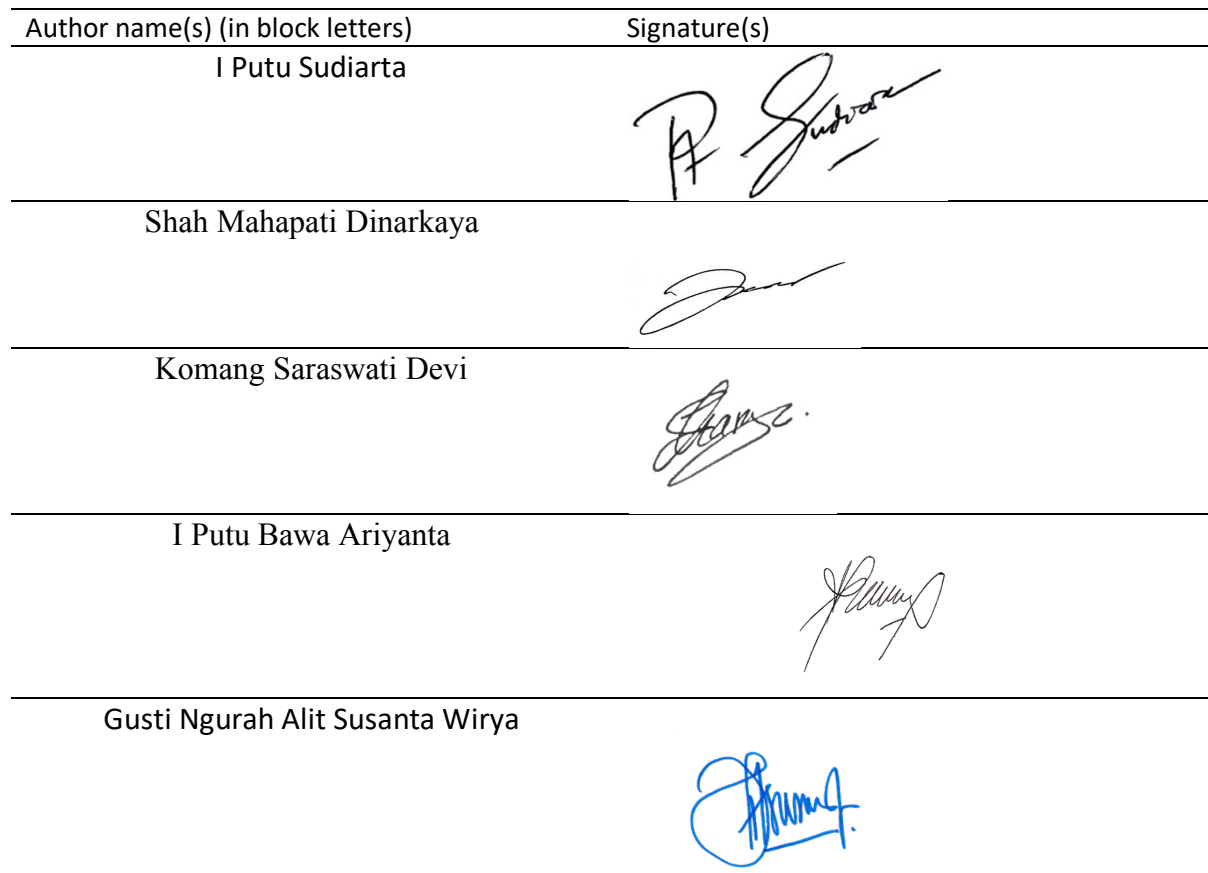 Author name(s) (in block letters) Signature(s)
I Putu Sudiarta
Shah Mahapati Dinarkaya
Komang Saraswati Devi
I Putu Bawa Ariyanta
Gusti Ngurah Alit Susanta Wirya